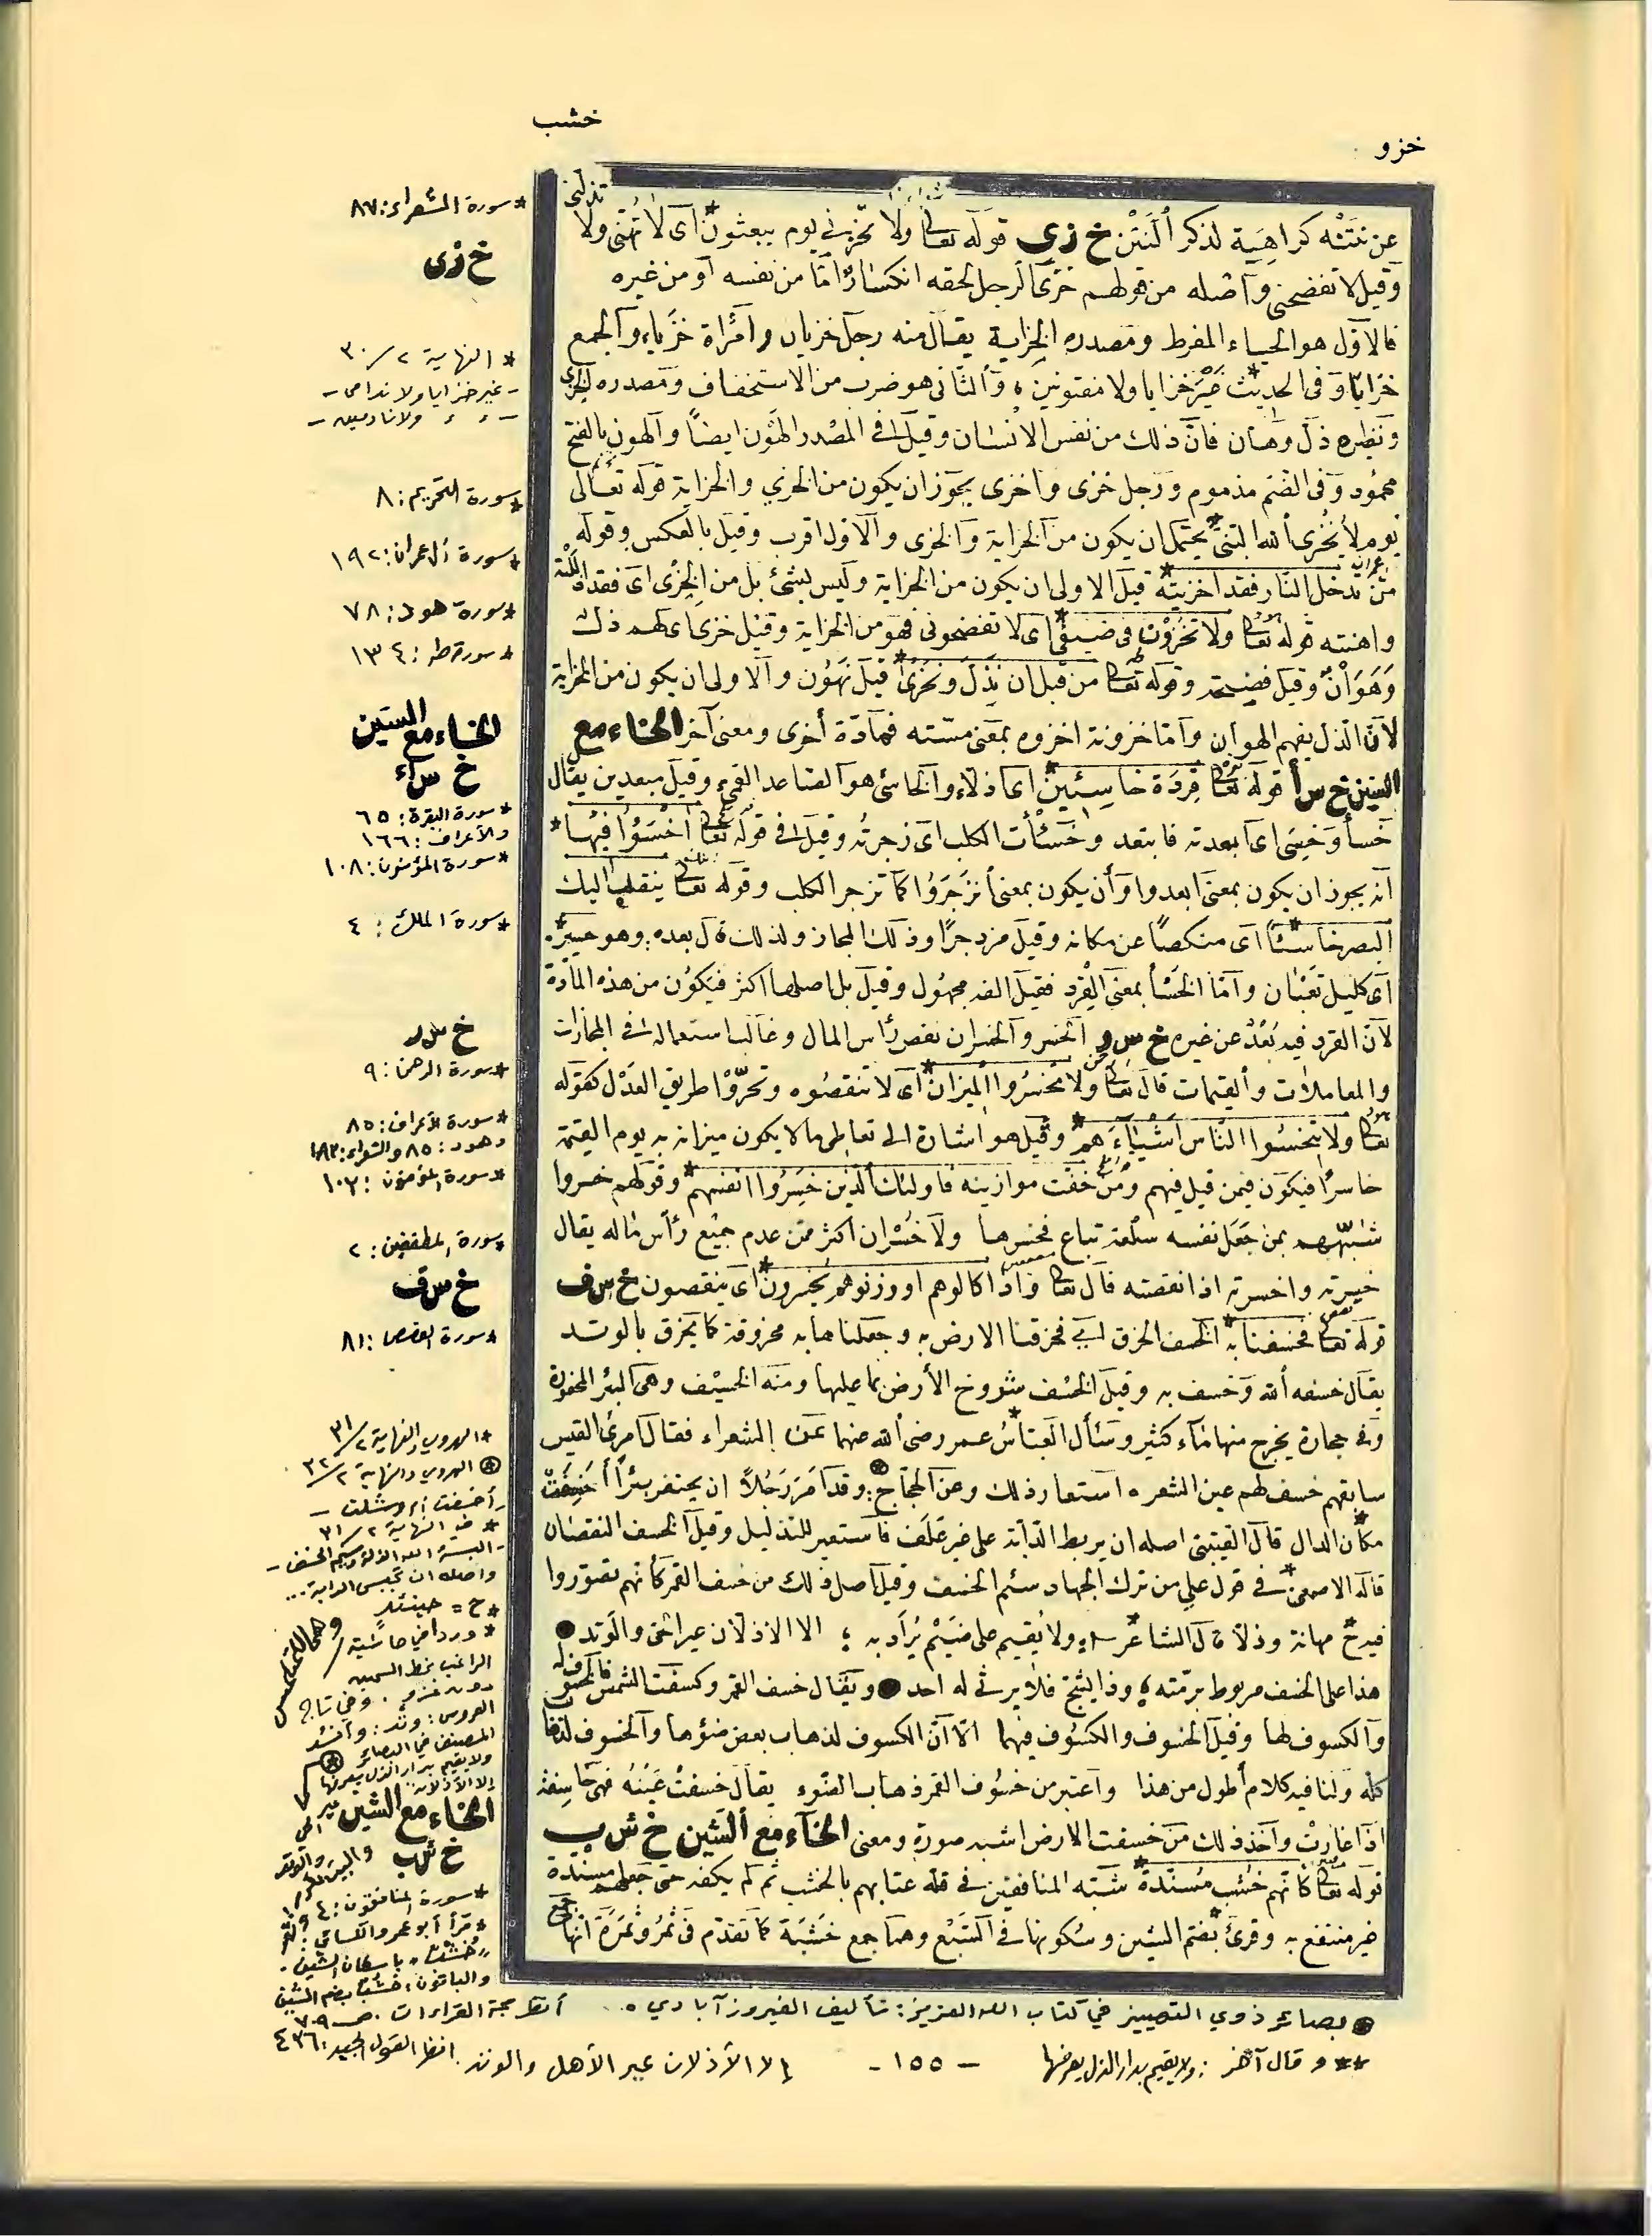 خشب
خزو
عن نتنه كراهية لذكر النتن خ زي قوله تعالى ولا تخزني يوم يبعثون* أى لا تهنى ولا تذلنى
وقيل لا تفضحنى وأصله من قولهم خزى الرجل لحقه انكسار اما من نفسه أو من غيره
فالاول هو الحياء المفرط ومصدره الخزاية يقال منه رجل خزيان وامرأة خزياء والجمع
خزايا وفى الحديث* غير خزايا ولا مفتونين والثانى هو ضرب من الاستخفاف ومصدره الخزى
ونظيره ذل وهان فان ذلك من نفس الانسان وقيل فى المصدر الهون ايضا والهون بالفتح
محمود وفى الضم مذموم ورجل خزى وأخزى يجوز ان يكون من الخزي والخزاية قوله تعالى
يوم لا يخزى الله النبى* يحتمل ان يكون من الخزاية والخزى والاول اقرب وقيل بالعكس وقوله
من تدخل النار فقد اخزيته* قيل الاولى ان يكون من الخزاية وليس بشئ بل من الخزى اى فقد
واهنته قوله تعالى ولا تخزون فى ضيفى* اى لا تفضحونى فهو من الخزاية وقيل خزى اى لهم ذل
وهوان وقيل فضيحة وقوله تعالى من قبل ان نذل ونخزى* قيل نهون والاولى ان يكون من الخزاية
لان الذل يفهم الهوان واما خزونه اخزوه بمعنى سسته فمادة أخرى ومعنى آخر الخاء مع
السين خ س أ قوله تعالى قردة خاسئين* اى اذلاء والخاسئ هو الصاعد القمئ وقيل مبعدين يقال
خسأ وخسئ اى ابعدته فابتعد وخسأت الكلب اى زجرته وقيل فى قوله تعالى اخسؤا فيها*
انه يجوز ان يكون بمعنى ابعدوا وأن يكون بمعنى انزجروا كما تزجر الكلب وقوله تعالى ينقلب اليك
البصر خاسئا* اى منكصا عن مكانه وقيل مزدجرا وذلك المجاز ولذلك قال بعده وهو حسير
اى كليل تعبان واما الخسأ بمعنى الفرد فقيل الفه مجهول وقيل بل اصلها اكثر فيكون من هذه المادة
لان الفرد فيه بعد عن غيره خ س ر الخسر والخسران نقص رأس المال وغالب استعماله فى التجارات
والمعاملات والقيمات قال تعالى ولا تخسروا الميزان* اى لا تنقصوه وتحروا طريق العدل كقوله
تعالى ولا تبخسوا الناس اشياءهم* وقيل هو اشارة الى تعاطى ما لا يكون ميزانه به يوم القيمة
خاسرا فيكون فيمن قيل فيهم ومن خفت موازينه فاولئك الذين خسروا انفسهم* وقولهم خسروا
شبههم بمن جعل نفسه سلعة تباع فخسرها ولا خسران اكثر ممن عدم جميع رأس ماله يقال
خسرته واخسرته اذا نقصته قال تعالى واذا كالوهم او وزنوهم يخسرون* اى ينقصون خ س ف
قوله تعالى فخسفنا به* الخسف الخرق اى فخرقنا الارض به وجعلناها به مخروقة كما يخرق بالوتد
يقال خسفه الله وخسف به وقيل الخسف شووخ الأرض بما عليها ومنه الخسيف وهى البئر المحفورة
فى حجارة يخرج منها ماء كثير وسأل العباس عمر رضى الله عنهما عن الشعراء فقال امرئ القيس
سابقهم خسف لهم عين الشعر* استعار ذلك وعن الحجاج وقد امر رجلا ان يحتفر بئرا أخسفت
مكان الدال قال القتيبى اصله ان يربط الدابة على غير علف فاستعير للتذليل وقيل الخسف النقصان
قاله الاصمعى* فى قول علي من ترك الجهاد سئم الخسف وقيل اصل ذلك من خسف القمر كأنهم تصوروا
فيه* مهانة وذلا قال الشاعر* ولا يقيم على ضيم يراد به الا الاذلان عير الحى والوتد
هذا على الخسف مربوط برمته وذا يشج فلا يرثى له احد ويقال خسف القمر وكسفت الشمس فالخسوف له
والكسوف لها وقيل الخسوف والكسوف فيهما الا ان الكسوف لذهاب بعض ضوئها والخسوف لذهاب
كله ولنا فيه كلام أطول من هذا واعتبر من خسوف القمر ذهاب الضوء يقال خسفت عينه فهى خاسفة
اذا غارت وآخذ ذلك من خسفت الارض اشبه صورة ومعنى الخاء مع الشين خ ش ب
قوله تعالى كانهم خشب مسندة* شبه المنافقين فى قلة عتابهم بالخشب ثم لم يكفه حتى جعلهم مسندة
غير منتفع به وقرئ* بضم الشين وسكونها فى السبع وهما جمع خشبة كما تقدم فى ثمر وثمرة انها جمع
* سورة الشعراء: ٨٧
خ زى
* النهاية ٢/ ٣٠
- غير خزايا ولا ندامى -
- ء ء ولا نادمين -
* سورة التحريم: ٨
* سورة آل عمران: ١٩٢
* سورة هود: ٧٨
* سورة طه: ١٣٤
الخاء مع السين
خ س أ
* سورة البقرة: ٦٥
والأعراف: ١٦٦
* سورة المؤمنون: ١٠٨
* سورة الملك: ٤
خ س ر
* سورة الرحمن: ٩
* سورة الأعراف: ٨٥
وهود: ٨٥ والشعراء: ١٨٣
* سورة المؤمنون: ١٠٣
* سورة المطففين: ٢
خ س ف
* سورة القصص: ٨١
* الهروي والنهاية ٢/ ٣١
الهروي والنهاية ٢/ ٣٢
- أخسفت أم وشلت -
* في النهاية ٢/ ٣١
- البسه الله الذلة وسيم الخسف -
وأصله ان تحبس الدابة...
* ح = حينئذ
* ورد في حاشية
الراغب بخط السمين
دون عزو. وفي تاج
العروس: وتد: وأنشد
المصنف في البصائر
ولا يقيم بدار الذل يعرفها
إلا الأذلان
الخاء مع الشين
خ ش ب
* سورة المنافقون: ٤
* قرأ أبو عمرو والكسائي
"خشب" باسكان الشين.
والباقون: خشب بضم الشين
أنظر حجة القراءات ص ٧٠٩
انظر القول الجيد: ٤٣٦
بصائر ذوي التمييز في كتاب الله العزيز: تأليف الفيروزآبادي.
** وقال آخر: ولا يقيم بدار الذل يعرفها
إلا الأذلان عير الأهل والوتد.
- ١٥٥ -